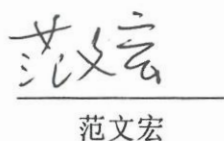 范文宏
范文宏